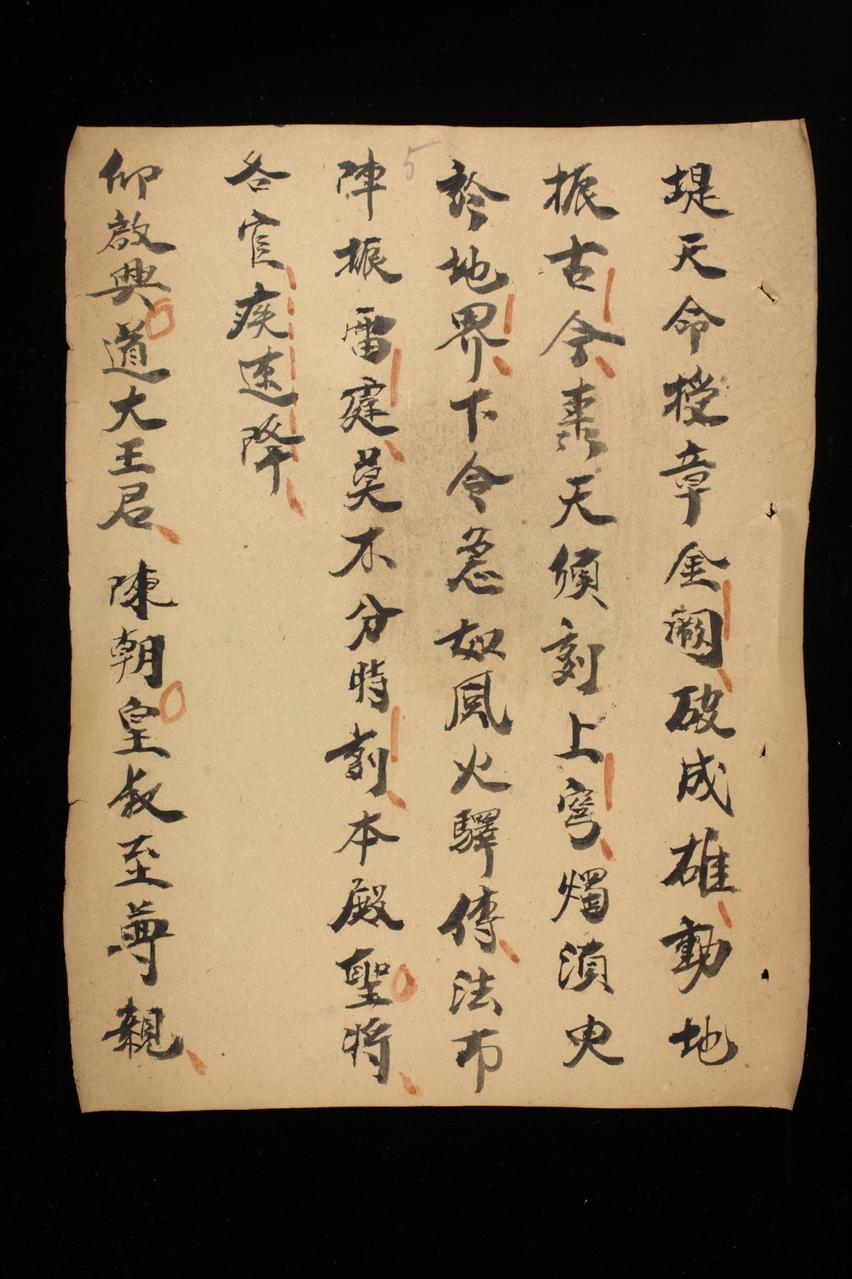 堤天命授章金阙破成雄動地
振古今橐天須刻上穹燭湏史
於地界下令急如風火驛傳法布
陣振雷霆莫不分時刻本殿聖将
各官疾速降
仰啟興道大王君陳朝皇叔至尊親
5